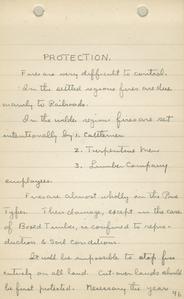 PROTECTION.
Fires are very difficult to control.
In the settled regions fires are due
mainly to Railroads.
In the wilder regions fires are set
intentionally by 1. Cattlemen
2. Turpentine Men
3. Lumber Company
employees.
Fires are almost wholly in the Pine
Types. Their damage, except in the case
of Boxed Timber, is confined to repro-
duction & Soil Conditions.
It will be impossible to stop fires
entirely on all land. Cut-over lands should
be first protected. Necessary the year